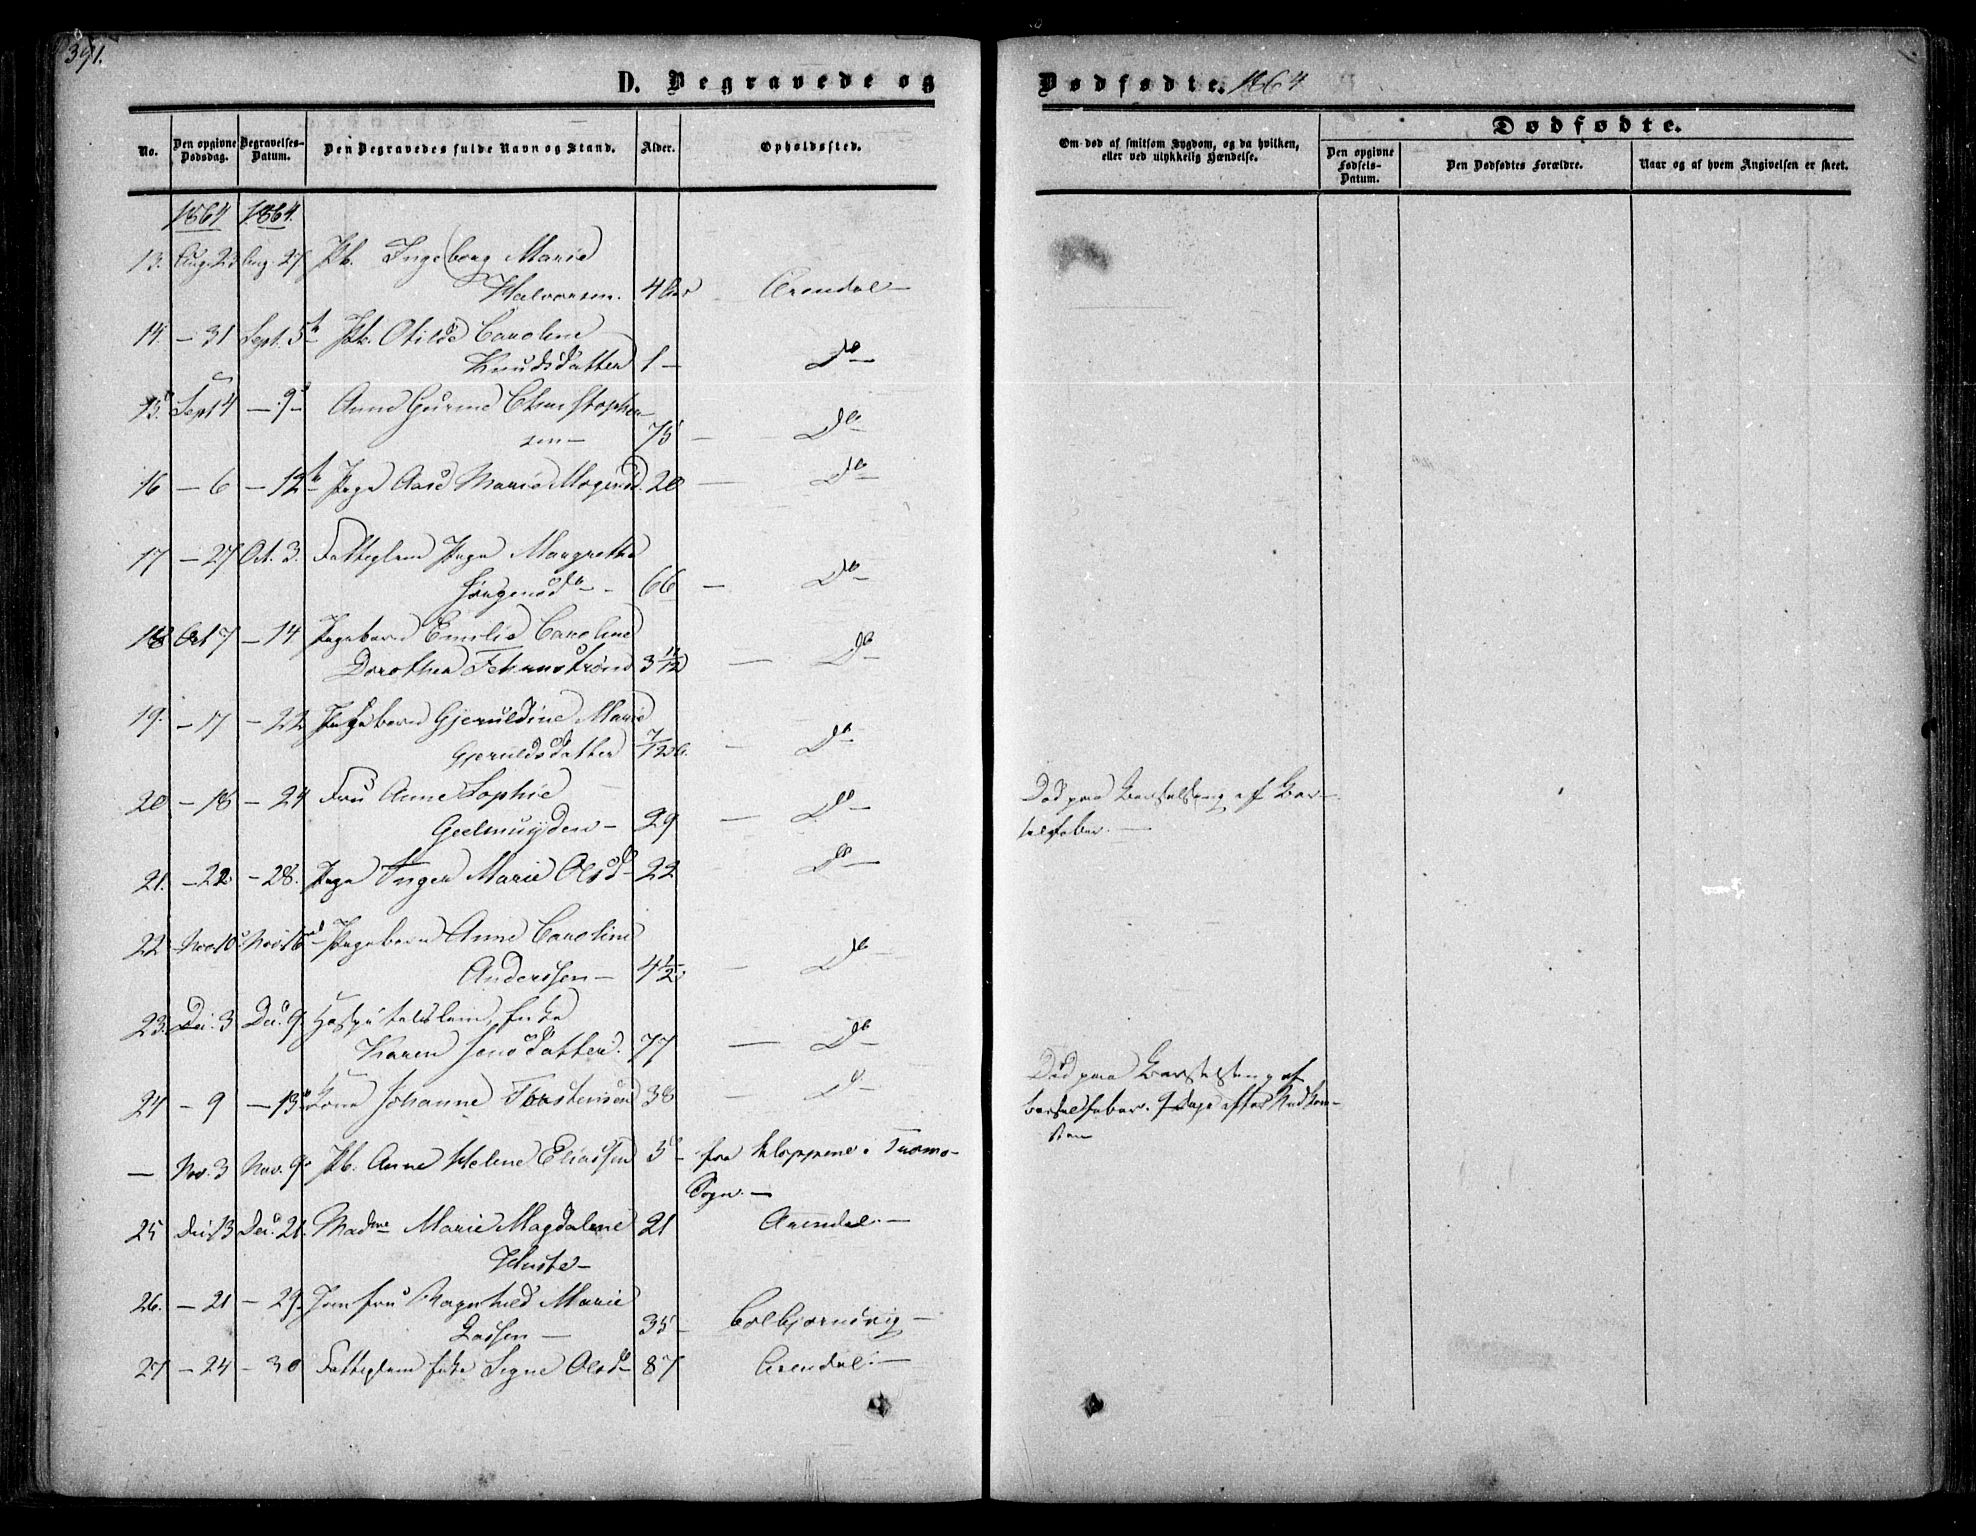 391.
D. Begravede og
Dødfødte. 1864
No.
Den opgivne Dødsdag.
Begravelses-Datum.
Den Begravedes fulde Navn og Stand.
Alder.
Opholdssted.
Om død af smitsom Sygdom, og da hvilken, eller ved ulykkelig Hændelse.
Dødfødte.
Den opgivne Fødsels-Datum.
Den Dødfødtes Forældre.
Naar og af hvem Angivelsen er skeet.
1864 1864.
13. Aug. 23 Aug. 27 Pb. Ingeborg Marie
Halvorsen. 4 Aar Arendal —
14. — 31 Sept. 5 Pk. Otilde Caroline
Knudsdatter 1 — Do —
15. Sept 4 — 9 — Anne Gurine Christopher
sen — 75 — Do
16 — 6 — 12 Pige Aase Marie Mogensd. 20 — Do —
17 — 27 Oct. 3. Fattiglem Pige Margrethe
Jörgensd — 66 — Do —
18 Oct 7 — 14. Pigebarn Emilie Caroline
Dorothea 3 11/12 — Do —
19. — 17 — 22 Pigebarn Gjeruldine Marie
Gjeruldsdatter 7/12 — Do —
20 — 18 — 24 Fru Anne Sophie
Geelmuyden — 29 — Do — Død paa Barselseng af Bar-
selfeber. —
21. — 22 — 28. Pige Inger Marie Olsd — 22 Do —
22. Nov. 10 Nov. 16 Pigebarn Anne Caroline
Anderssen — 4 1/2 — Do —
23. Dec. 3 Dec. 9. Hospitalslem, Enke
Karen Jensdatter. 77 — Do —
24 — 9 — 13 Kone Johanne Torstensen 38 — Do — Død paa Barselseng af
Barselfeber. 9 Dage efter Nedkom-
sten
— Nov. 3 Nov. 9 Pb. Anne Helene Eliassen 5 — fra Kloppene i Tromö-
Sogn. —
25 Dec. 13 Dec. 21. Madme Marie Magdalene 21 Arendal. —
26. — 21 — 29. Jomfru Ragnhild Marie
Lassen — 35 — Colbjornsvig —
27 — 24 — 30 Fattiglem Enke Signe Olsd — 87 Arendal. —